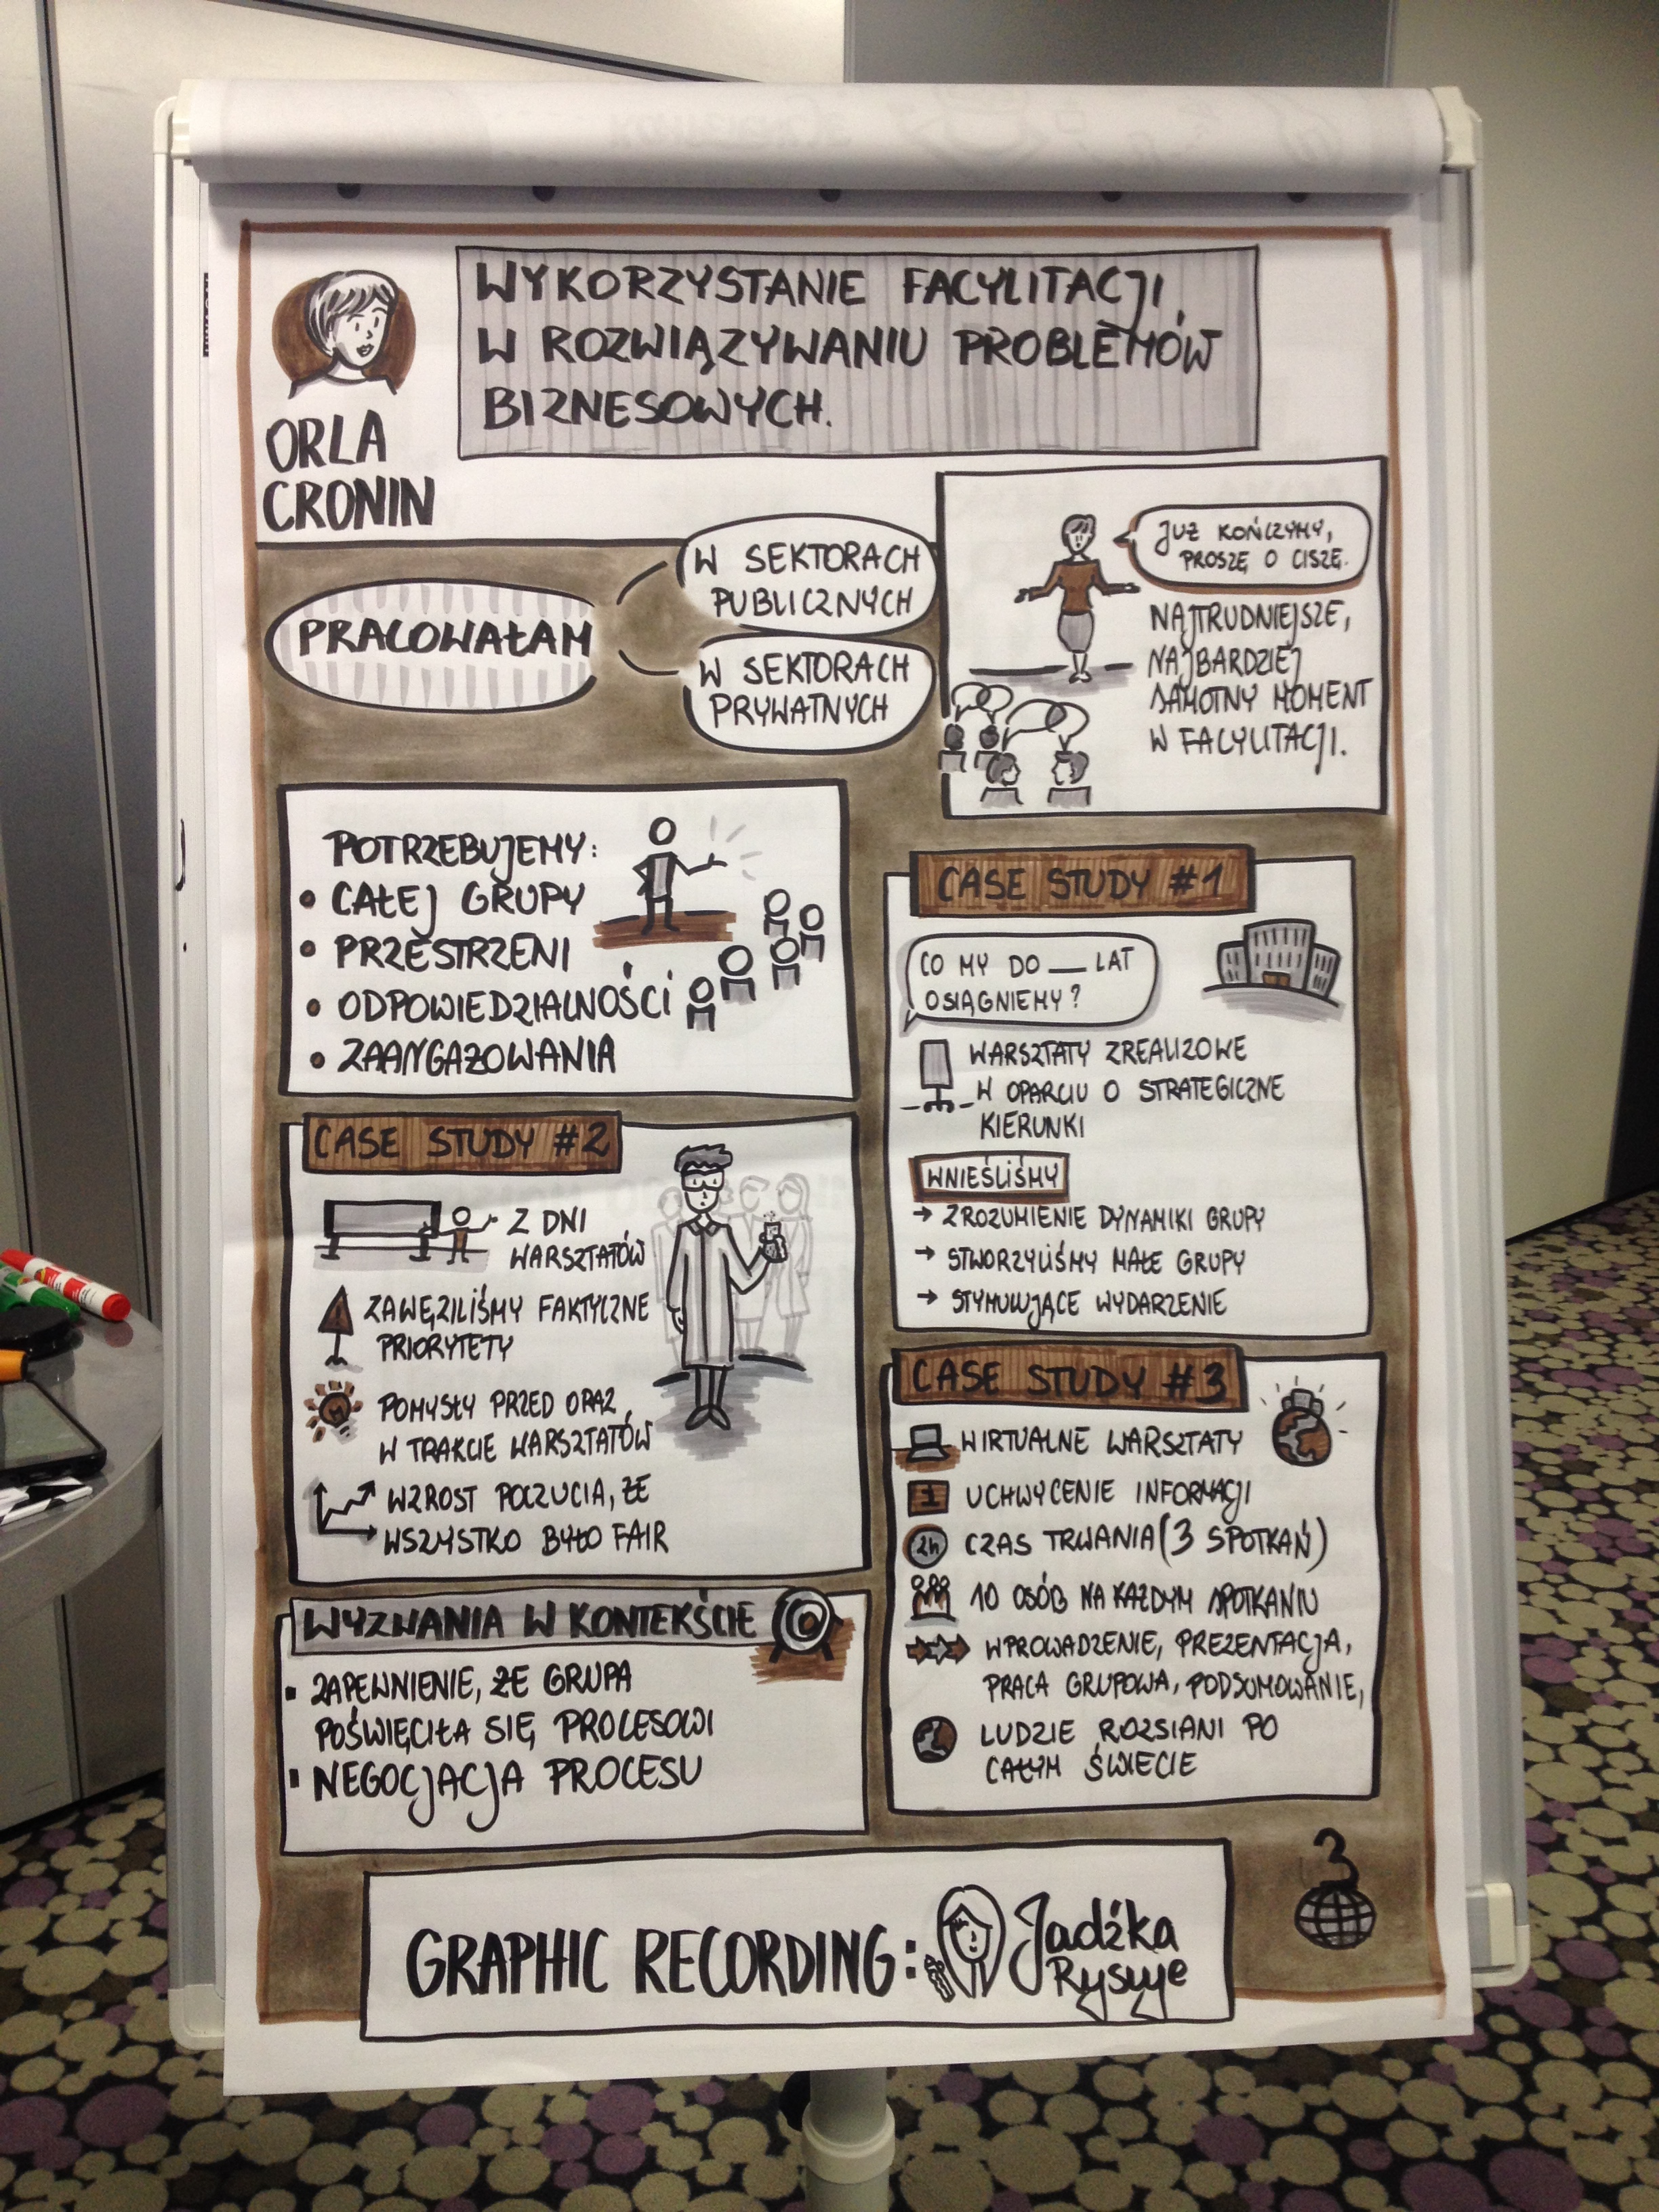 WYKORZYSTANIE FACYLITACJI
W ROZWIĄZYWANIU PROBLEMÓW
BIZNESOWYCH.
ORLA
CRONIN
PRACOWAŁAM
W SEKTORACH
PUBLICZNYCH
W SEKTORACH
PRYWATNYCH
JUŻ KOŃCZYMY,
PROSZĘ O CISZĘ.
NAJTRUDNIEJSZE,
NAJBARDZIEJ
SAMOTNY MOMENT
W FACYLITACJI.
POTRZEBUJEMY:
• CAŁEJ GRUPY
• PRZESTRZENI
• ODPOWIEDZIALNOŚCI
• ZAANGAŻOWANIA
CASE STUDY #1
CO MY DO ___ LAT
OSIĄGNIEMY?
WARSZTATY ZREALIZOWE
W OPARCIU O STRATEGICZNE
KIERUNKI
WNIEŚLIŚMY
→ ZROZUMIENIE DYNAMIKI GRUPY
→ STWORZYLIŚMY MAŁE GRUPY
→ STYMULUJĄCE WYDARZENIE
CASE STUDY #2
2 DNI
WARSZTATÓW
ZAWĘZILIŚMY FAKTYCZNE
PRIORYTETY
POMYSŁY PRZED ORAZ
W TRAKCIE WARSZTATÓW
WZROST POCZUCIA, ŻE
WSZYSTKO BYŁO FAIR
CASE STUDY #3
WIRTUALNE WARSZTATY
1 UCHWYCENIE INFORMACJI
2h CZAS TRWANIA (3 SPOTKAŃ)
10 OSÓB NA KAŻDYM SPOTKANIU
WPROWADZENIE, PREZENTACJA,
PRACA GRUPOWA, PODSUMOWANIE,
LUDZIE ROZSIANI PO
CAŁYM ŚWIECIE
WYZWANIA W KONTEKŚCIE
▪ ZAPEWNIENIE, ŻE GRUPA
POŚWIĘCIŁA SIĘ PROCESOWI
▪ NEGOCJACJA PROCESU
GRAPHIC RECORDING:
Jadźka
Rysuje
3